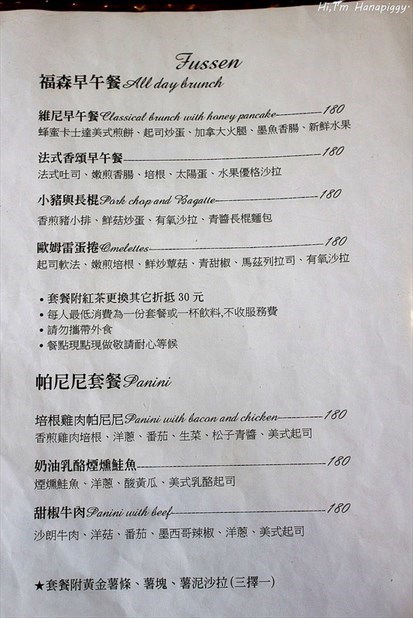 Hi,I'm Hanapiggy.
Fussen
福森早午餐All day brunch
維尼早午餐Classical brunch with honey pancake 180
蜂蜜卡士達美式煎餅、起司炒蛋、加拿大火腿、墨魚香腸、新鮮水果
法式香頌早午餐 180
法式吐司、嫩煎香腸、培根、太陽蛋、水果優格沙拉
小豬與長棍Pork chop and Bagatte 180
香煎豬小排、鮮菇炒蛋、有氧沙拉、青醬長棍麵包
歐姆雷蛋捲Omelettes 180
起司軟法、嫩煎培根、鮮炒蘑菇、青甜椒、馬茲列拉司、有氧沙拉
• 套餐附紅茶更換其它折抵 30 元
• 每人最低消費為一份套餐或一杯飲料,不收服務費
• 請勿攜帶外食
• 餐點現點現做敬請耐心等候
帕尼尼套餐Panini
培根雞肉帕尼尼Panini with bacon and chicken 180
香煎雞肉培根、洋蔥、番茄、生菜、松子青醬、美式起司
奶油乳酪煙燻鮭魚 180
煙燻鮭魚、洋蔥、酸黃瓜、美式乳酪起司
甜椒牛肉Panini with beef 180
沙朗牛肉、洋菇、番茄、墨西哥辣椒、洋蔥、美式起司
★套餐附黃金薯條、薯塊、薯泥沙拉(三擇一)